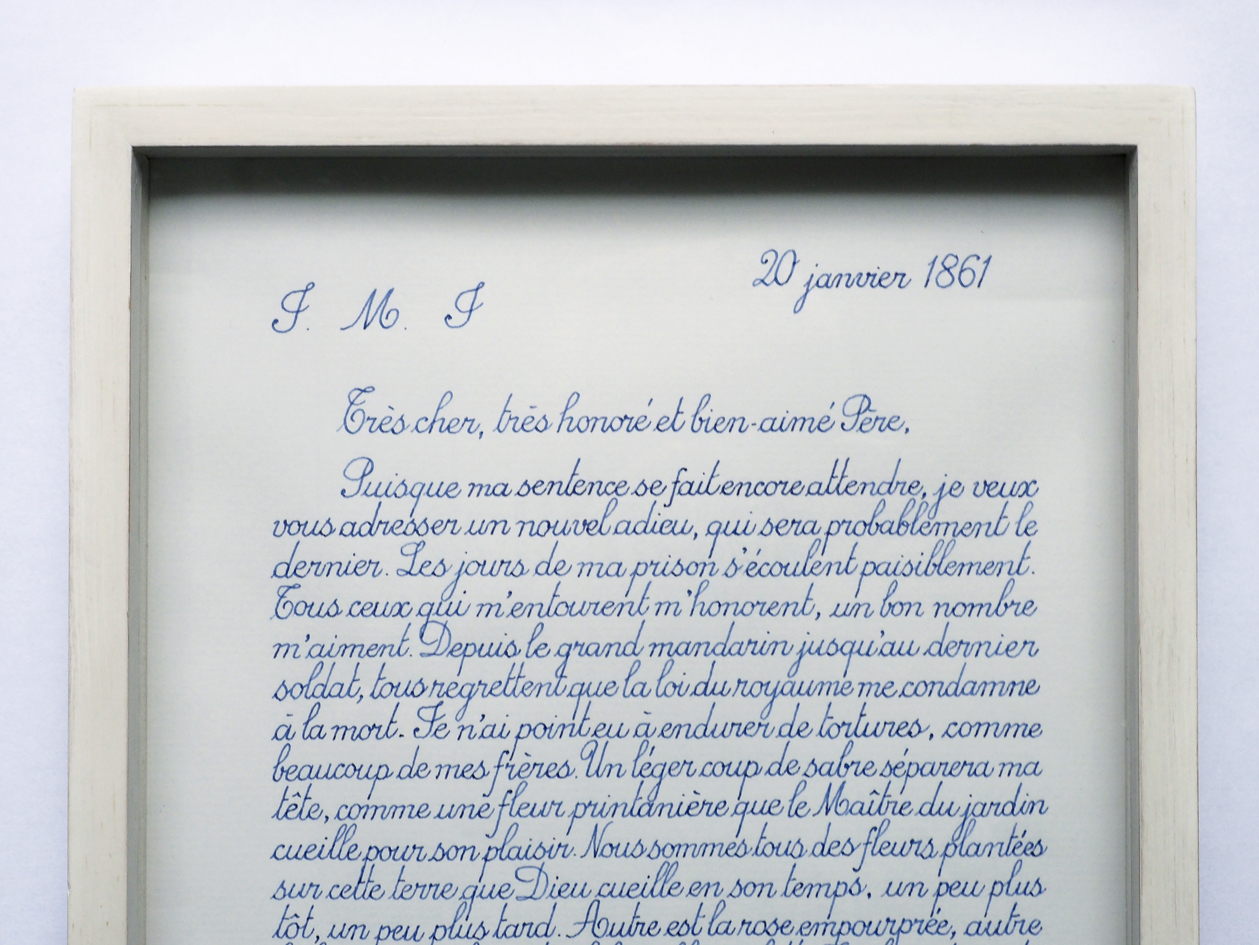 20 janvier 1861
J. M. J
Très cher, très honoré et bien-aimé Père,
Puisque ma sentence se fait encore attendre, je veux
vous adresser un nouvel adieu, qui sera probablement le
dernier. Les jours de ma prison s'écoulent paisiblement.
Tous ceux qui m'entourent m'honorent, un bon nombre
m'aiment. Depuis le grand mandarin jusqu'au dernier
soldat, tous regrettent que la loi du royaume me condamne
à la mort. Je n'ai point eu à endurer de tortures, comme
beaucoup de mes frères. Un léger coup de sabre séparera ma
tête, comme une fleur printanière que le Maître du jardin
cueille pour son plaisir. Nous sommes tous des fleurs plantées
sur cette terre que Dieu cueille en son temps, un peu plus
tôt, un peu plus tard. Autre est la rose empourprée, autre